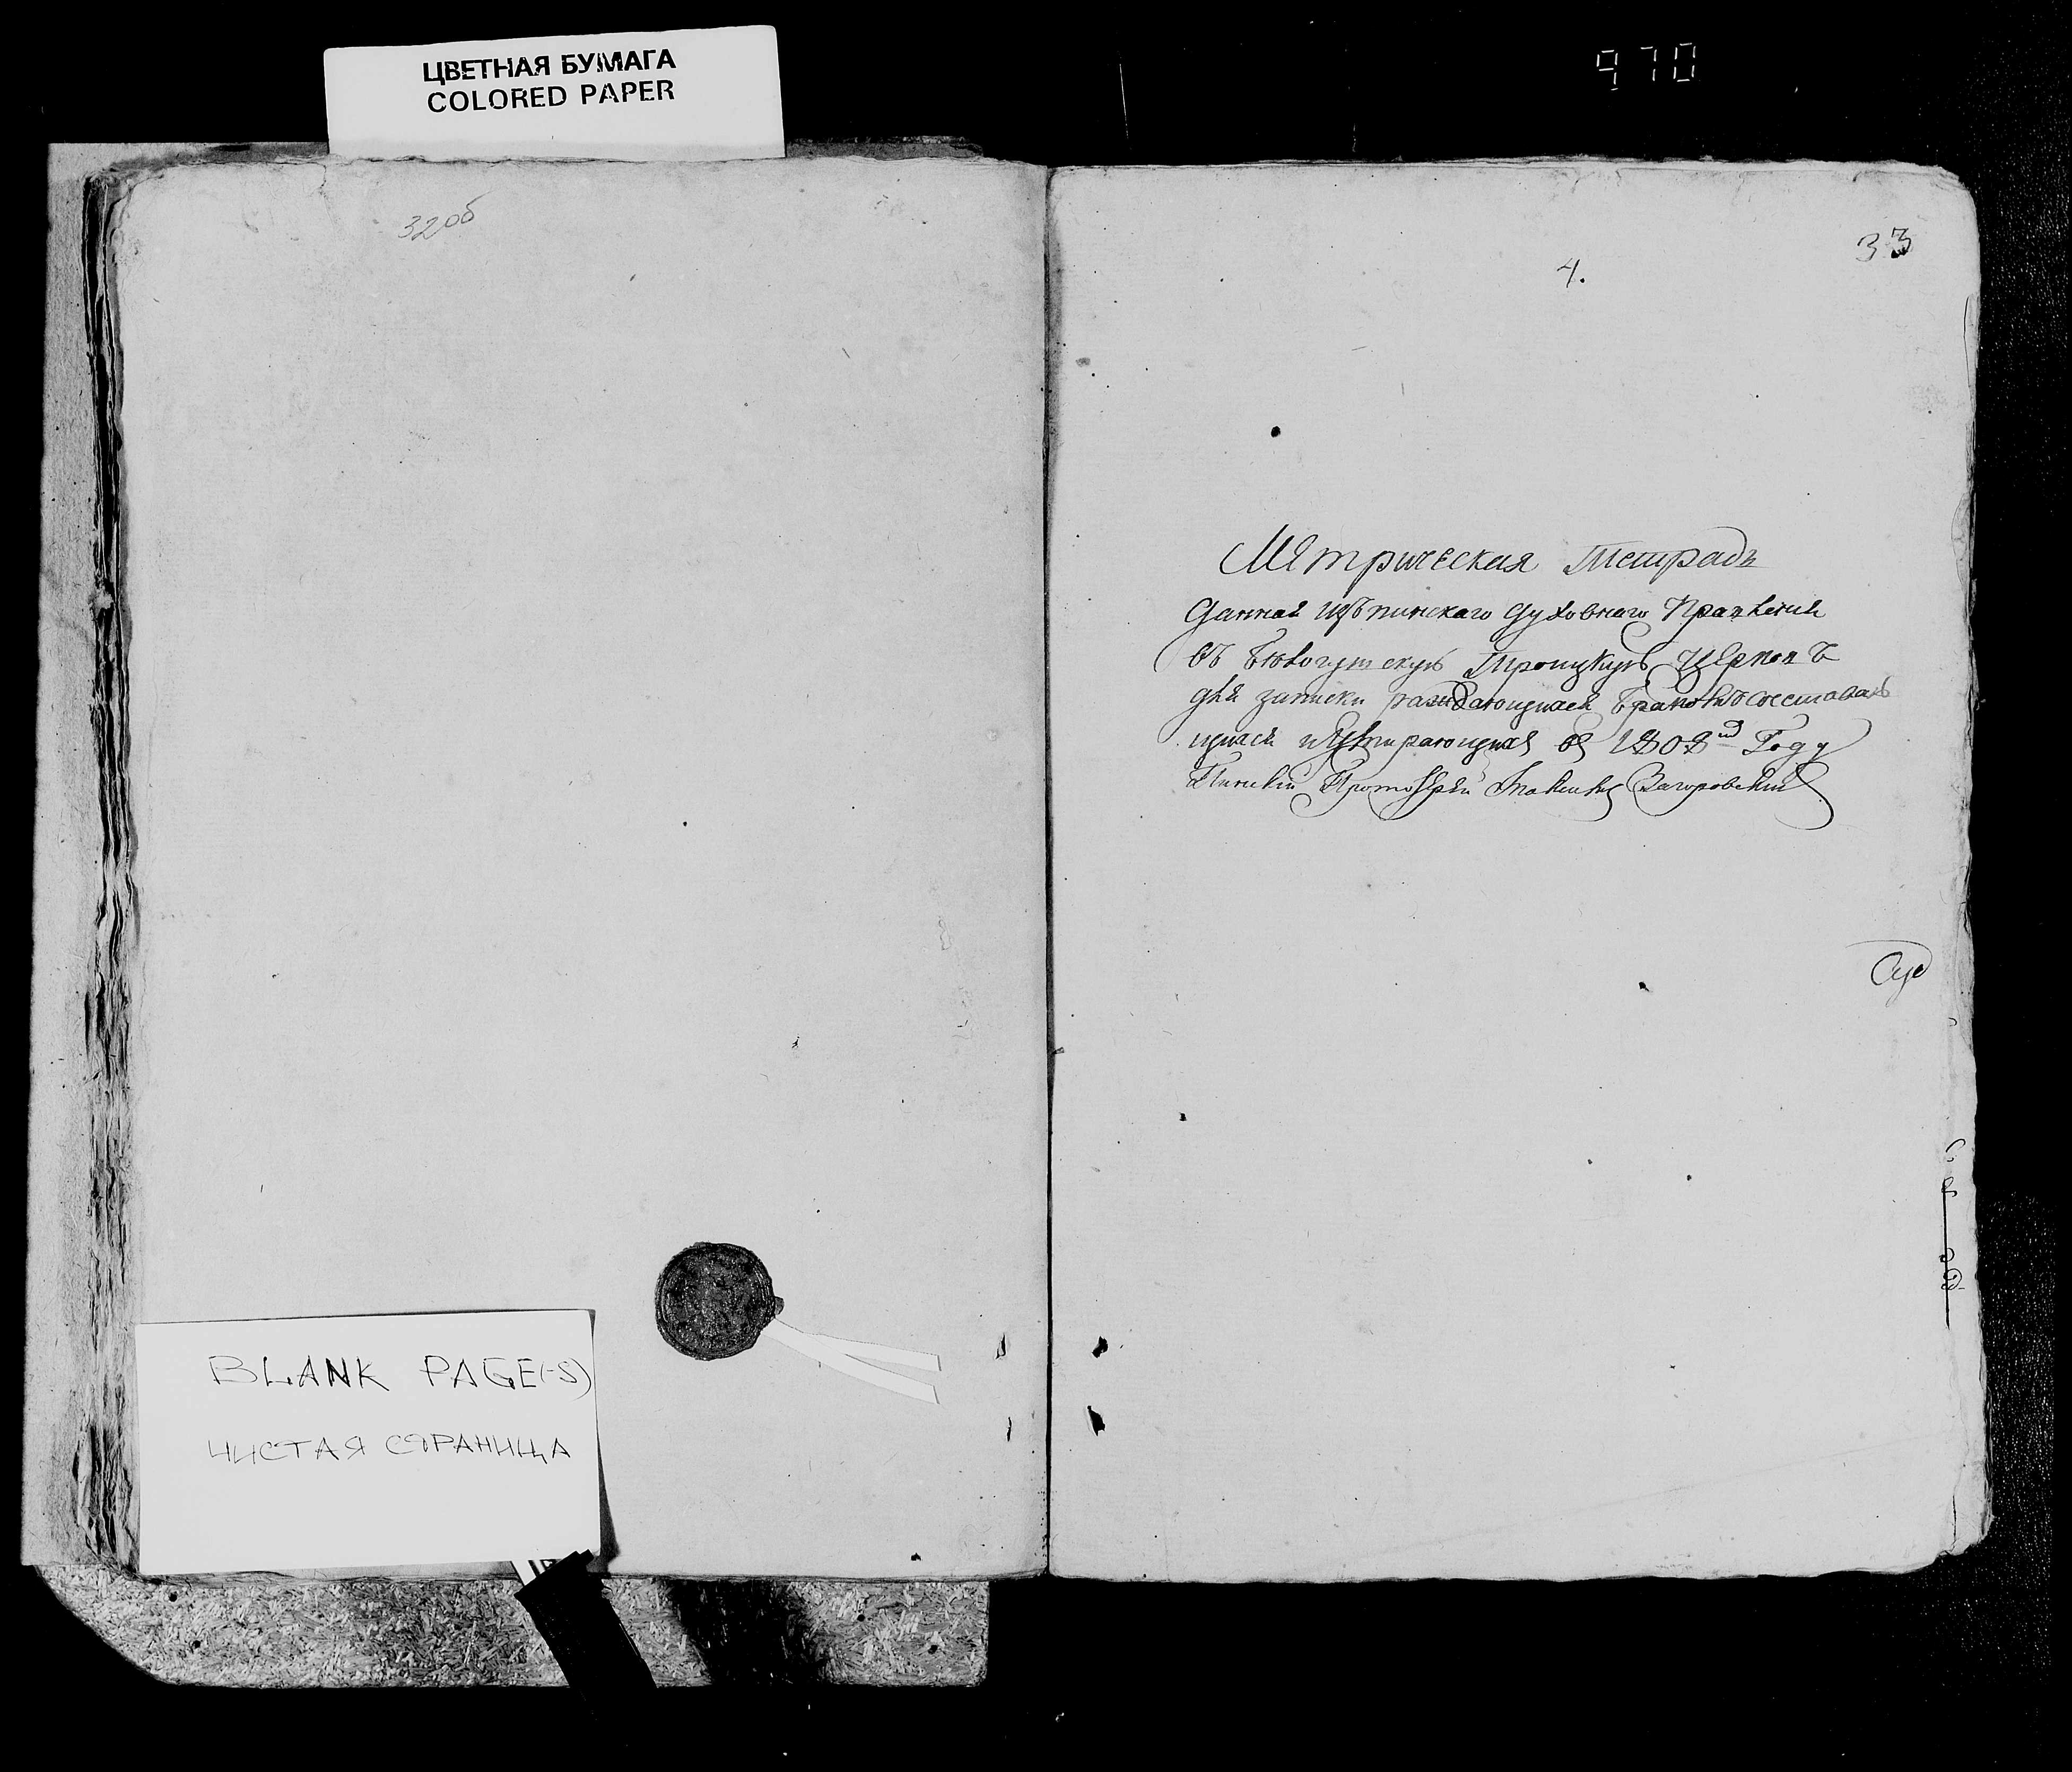 ЦВЕТНАЯ БУМАГА
COLORED PAPER
970
32об
33
4.
Метрическая Тетрадь
Данная изъ пинскаго Духовнаго Правления
въ Троицкую Церковъ
для записки раждающихся Браковъ
щихся и Умирающихъ въ 1808й Году
Пинский ПротоІерей Загоровский
BLANK PAGE(-S)
ЧИСТАЯ СТРАНИЦА